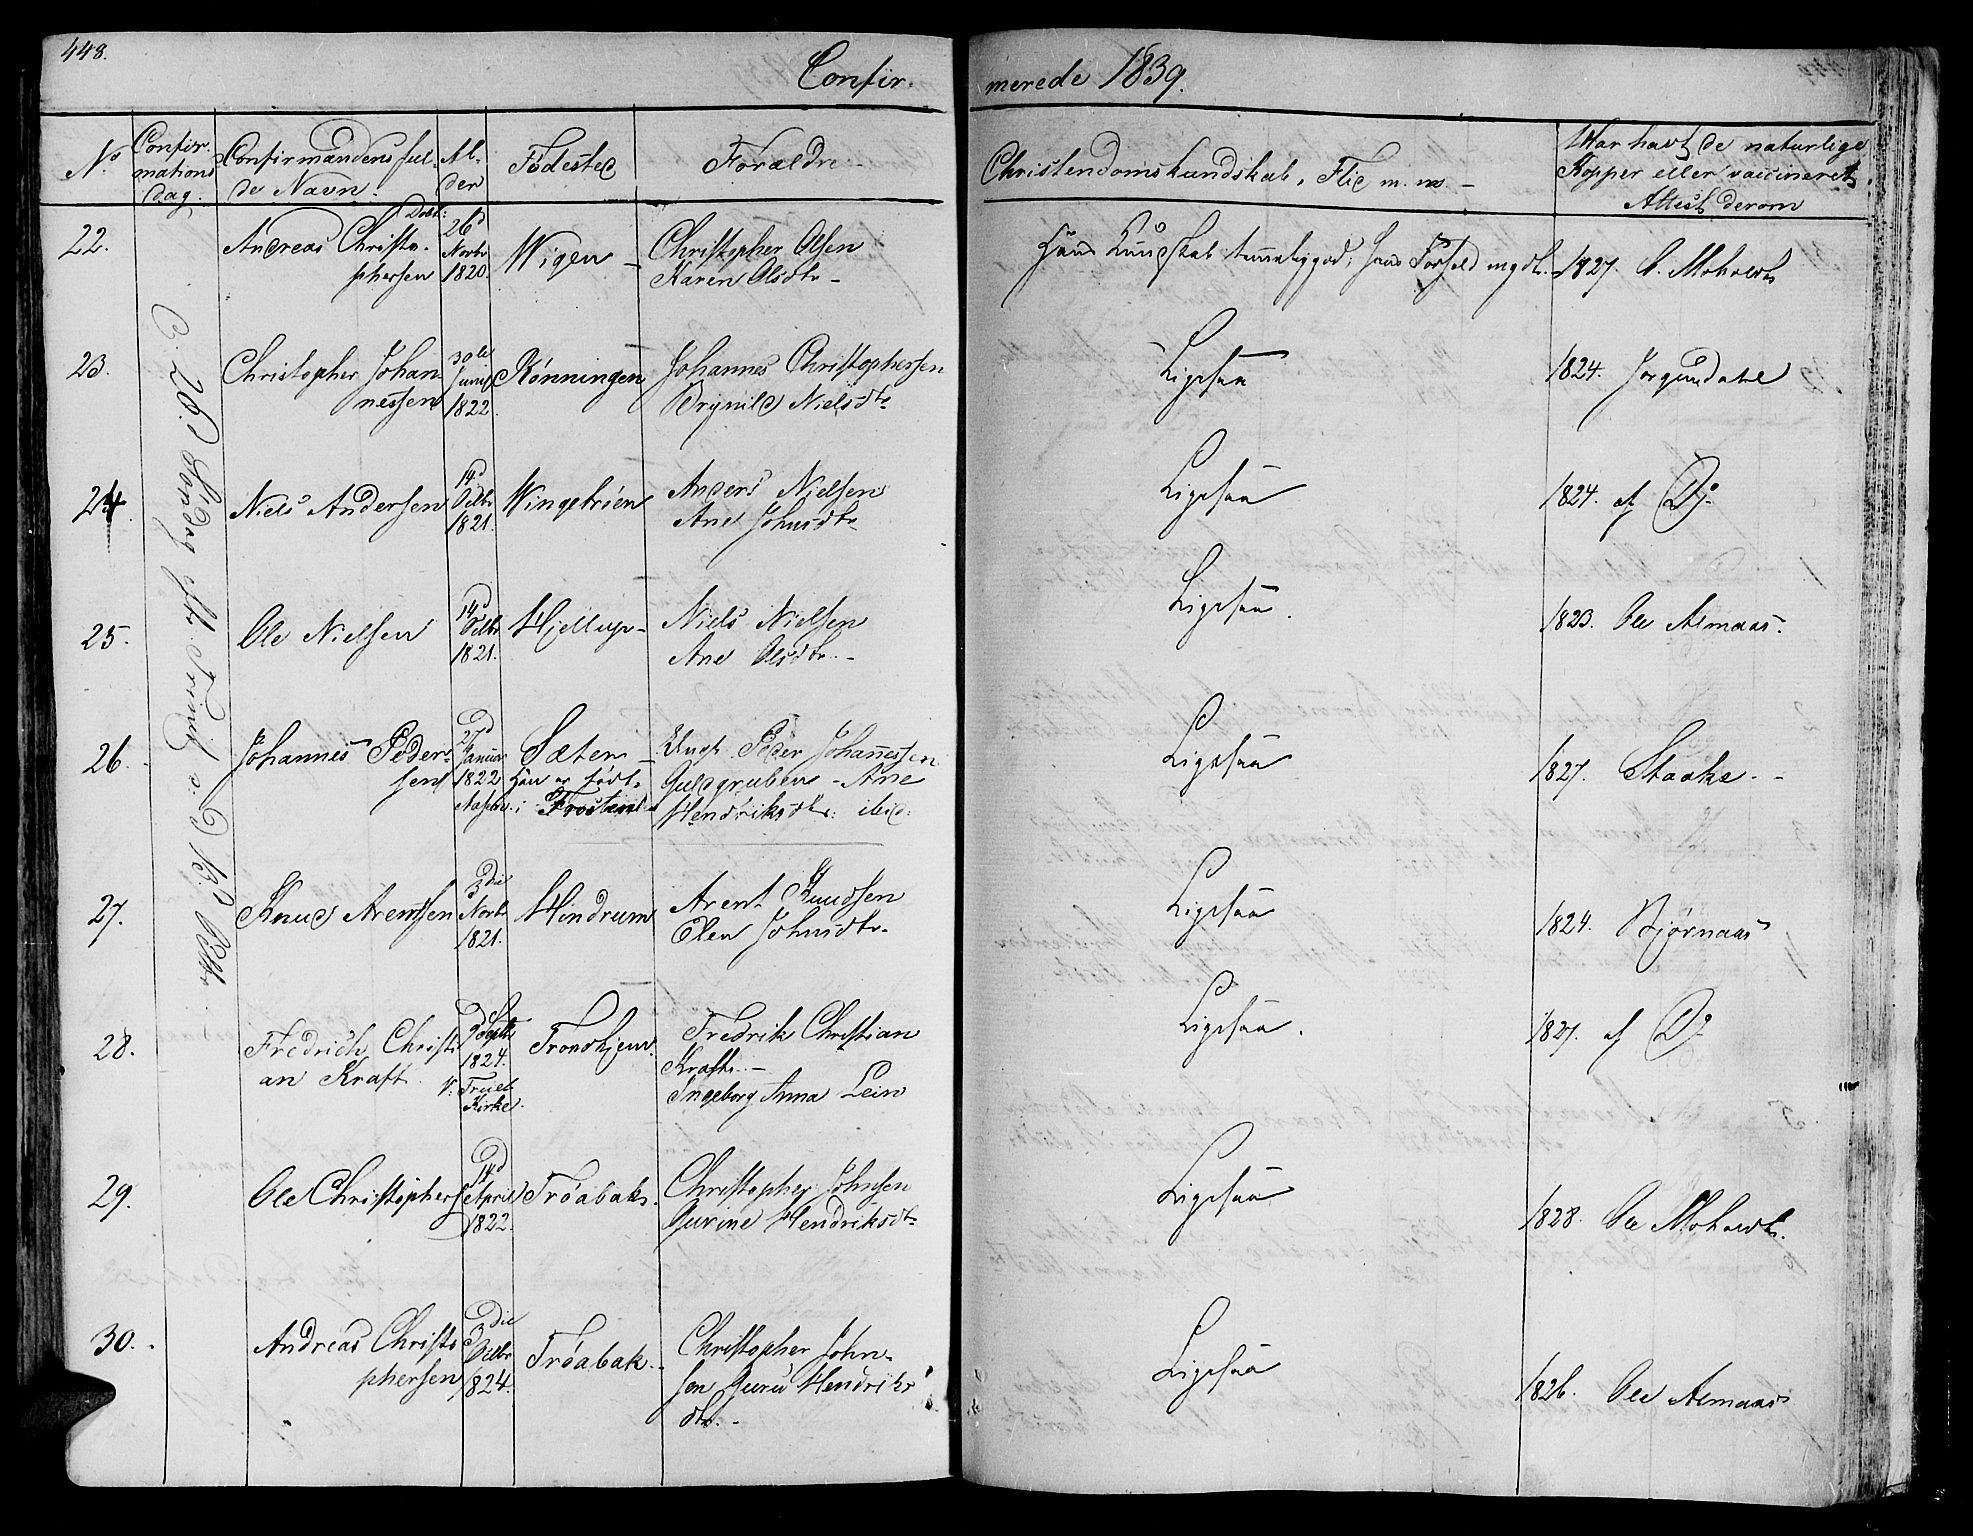 448.
Confir-
merede 1839.
No
Confir-
mations
dag.
Confirmandens ful-
de Navn.
Al-
der
Fødested
Forældre
Christendomskundskab, Flid m. m.
Har havt de naturlige
Kopper eller vaccineret,
Attest derom
d. 26d Sondag eft. Trinit: d. 13d Octbr
22.
Andreas Christo-
phersen
Døbt:
26d
Novbr
1820
Wigen
Christopher Olsen
Karen Olsdtr
Hans Kundskab temmelig god, hans Forhold mgdt.
1827. O. Moholdt
23.
Christopher Johan-
nessen
30te
Junij
1822.
Rønningen
Johannes Christophersen
Brynild Nielsdtr
Ligesaa
1824. Jorgundahl
24.
Niels Andersen
14d
Octbr
1821.
Wingetrøen
Anders Nielsen
Ane Johnsdtr
Ligesaa
1824. af Do
25.
Ole Nielsen
14d
Octbr
1821.
Hjellup
Niels Nielsen
Ane Olsdtr.
Ligesaa.
1823. Ole Aemaas.
26.
Johannes Peder-
sen
27d
Januar
1822
Sæter
Han er født
i Frosten
Ungk. Peder Johannessen
Guldgruben - Ane
Hendriksdtr: ibid:
Ligesaa
1827. Staake.
27.
Knud Arentsen
3die
Novbr
1821.
Hindrum
Arent Knudsen
Elen Johnsdtr.
Ligesaa
1824. Bjørnaas
28.
Fredrich Christi
an Kraft.
9d Septbr
1824.
V. Frue
Kirke.
Trondhjem.
Fredrik Christian
Kraft.
Ingeborg Anna Lein
Ligesaa.
1827. af Do
29.
Ole Christophers
14d
April
1822.
Trøabak.
Christopher Johnsen
Gurine Hendriksdtr
Ligesaa
1828. Ole Moholdt.
30.
Andreas Christo
phersen
3die
Octbr
1824.
Trøabak.
Christopher John-
sen Guru Hendriks
dtr.
Ligesaa
1826. Ole Aemaas